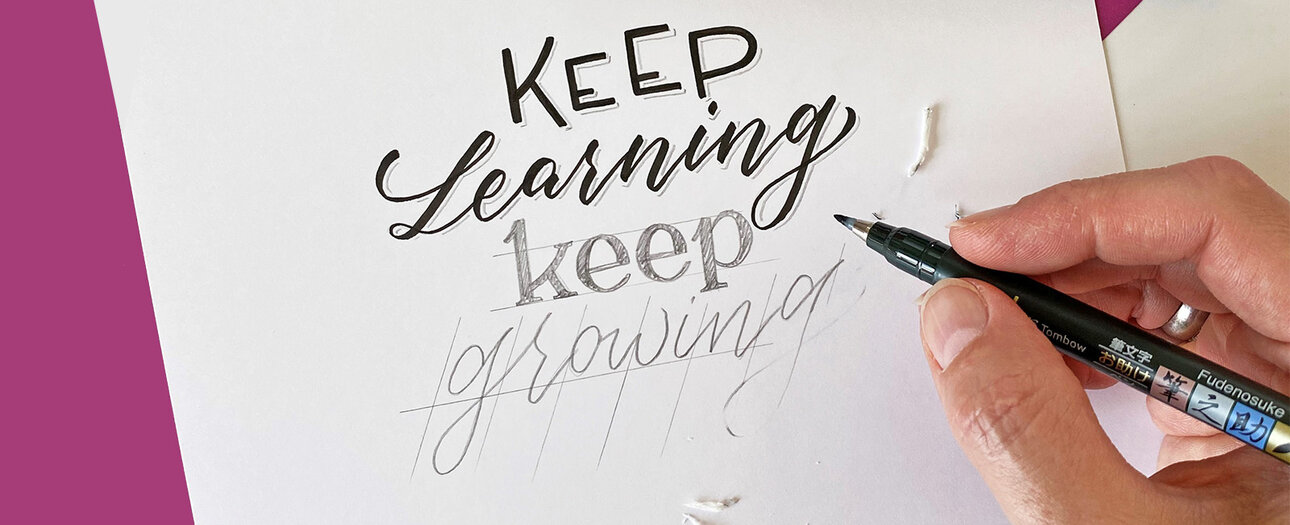 KEEP
Learning
keep
growing
Tombow
筆文字
お助け
Fudenosuke
筆之助